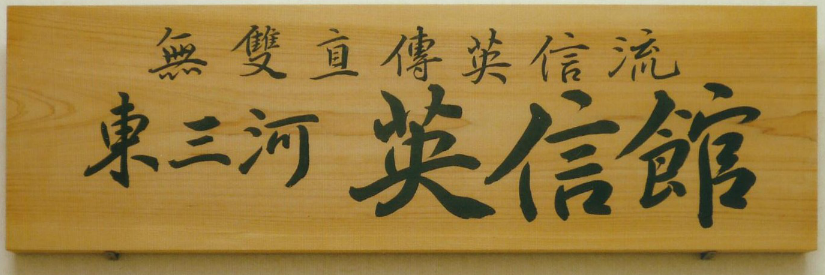 無雙直傳英信流
東三河 英信館